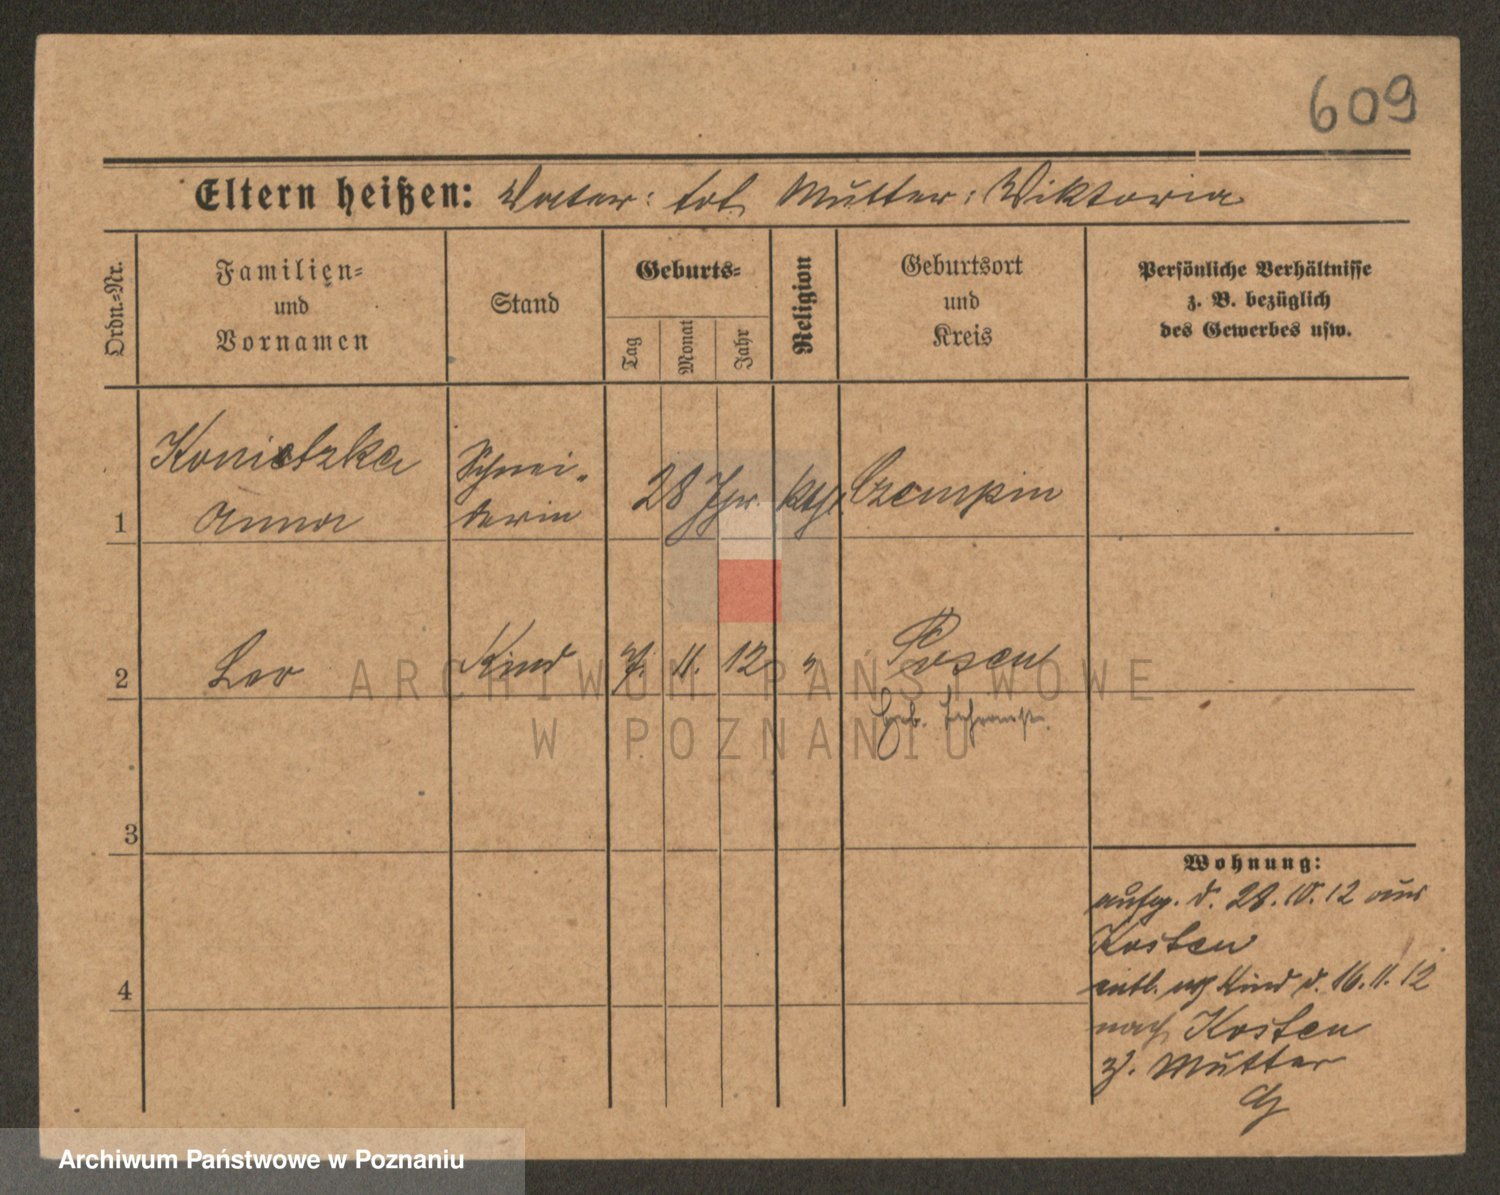 609
Eltern heißen: Vater: tot Mutter: Wiktoria
Ordn.=Nr.
Familien=
und
Vornamen
Stand
Geburts=
Tag
Monat
Jahr
Religion
Geburtsort
und
Kreis
Persönliche Verhältnisse
z. B. bezüglich
des Gewerbes usw.
1
Konietzka
Anna
Schnei-
derin
28 Jhr.
kth.
Czempin
2
Leo
Kind
7. 11. 12
"
Posen
Geb.
3
4
Wohnung:
aufg. d. 28. 10. 12 aus
Kosten
entl. Kind d. 16. 11. 12
nach Kosten
z. Mutter
ARCHIWUM PAŃSTWOWE
W POZNANIU
Archiwum Państwowe w Poznaniu